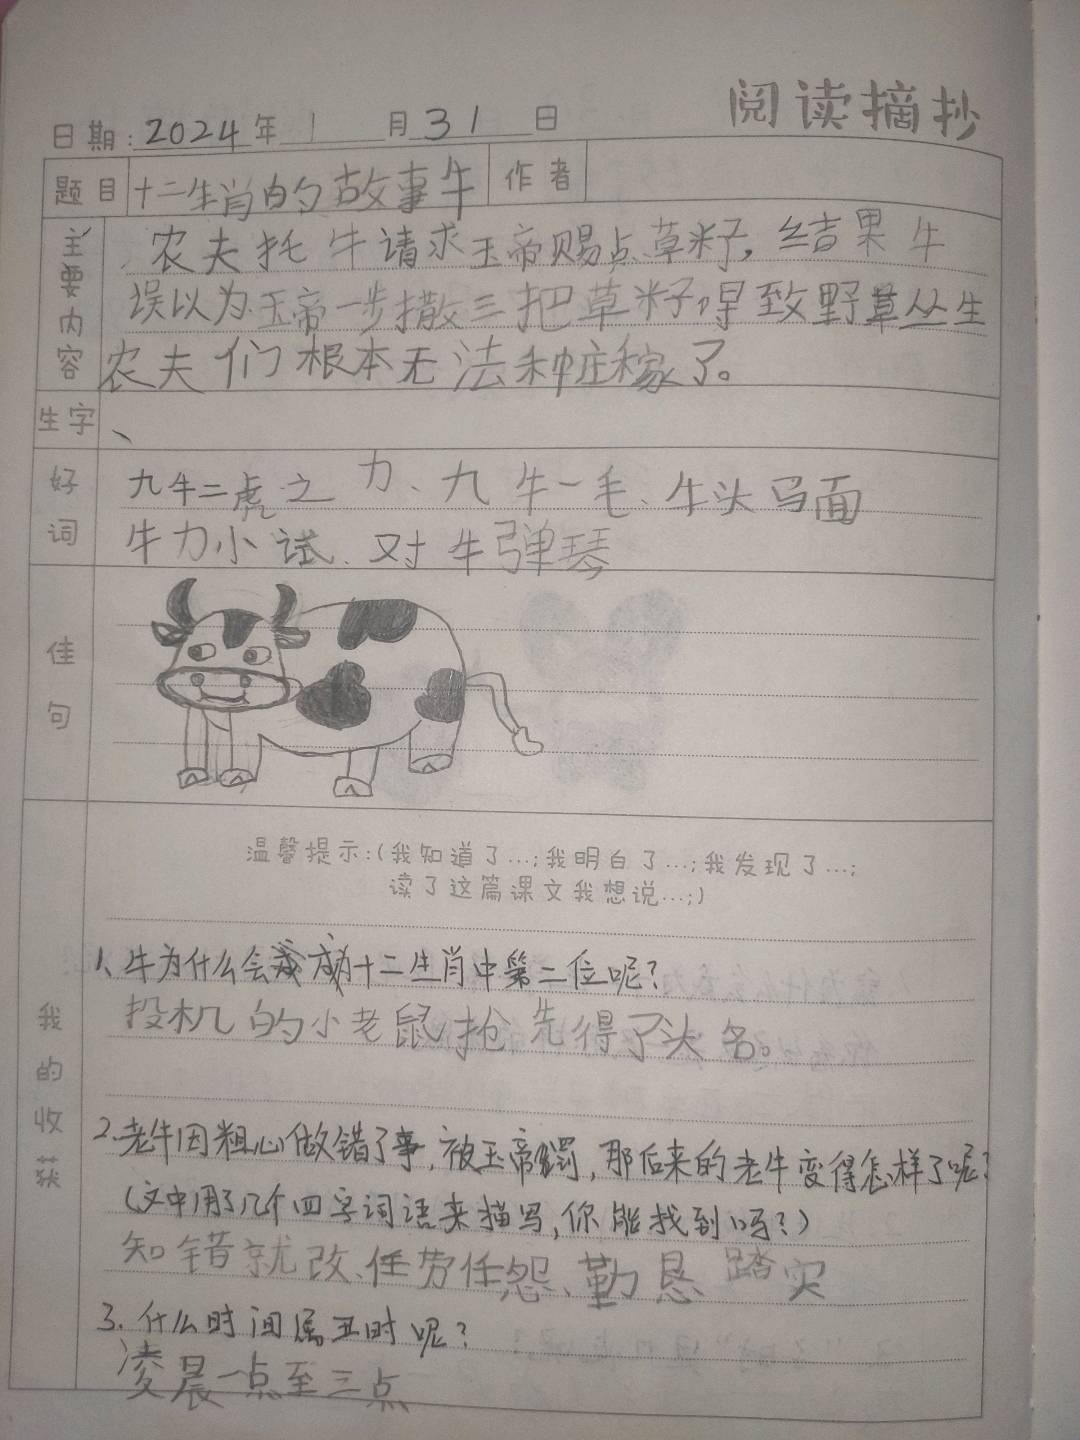 阅读摘抄
日期:2024年1月31日
题目 十二生肖的故事牛 作者
主要内容
农夫托牛请求玉帝赐点草籽,结果牛
误以为玉帝一步撒三把草籽,导致野草丛生
农夫们根本无法种庄稼了。
生字
、
好词
九牛二虎之力、九牛一毛、牛头马面
牛刀小试、对牛弹琴
佳句
温馨提示:(我知道了…;我明白了…;我发现了…;
读了这篇课文我想说…;)
我的收获
1、牛为什么会成为十二生肖中第二位呢?
投机的小老鼠抢先得了头名。
2、老牛因粗心做错了事,被玉帝罚,那后来的老牛变得怎样了呢?
(文中用了几个四字词语来描写,你能找到吗?)
知错就改、任劳任怨、勤恳踏实
3.什么时间属丑时呢?
凌晨一点至三点